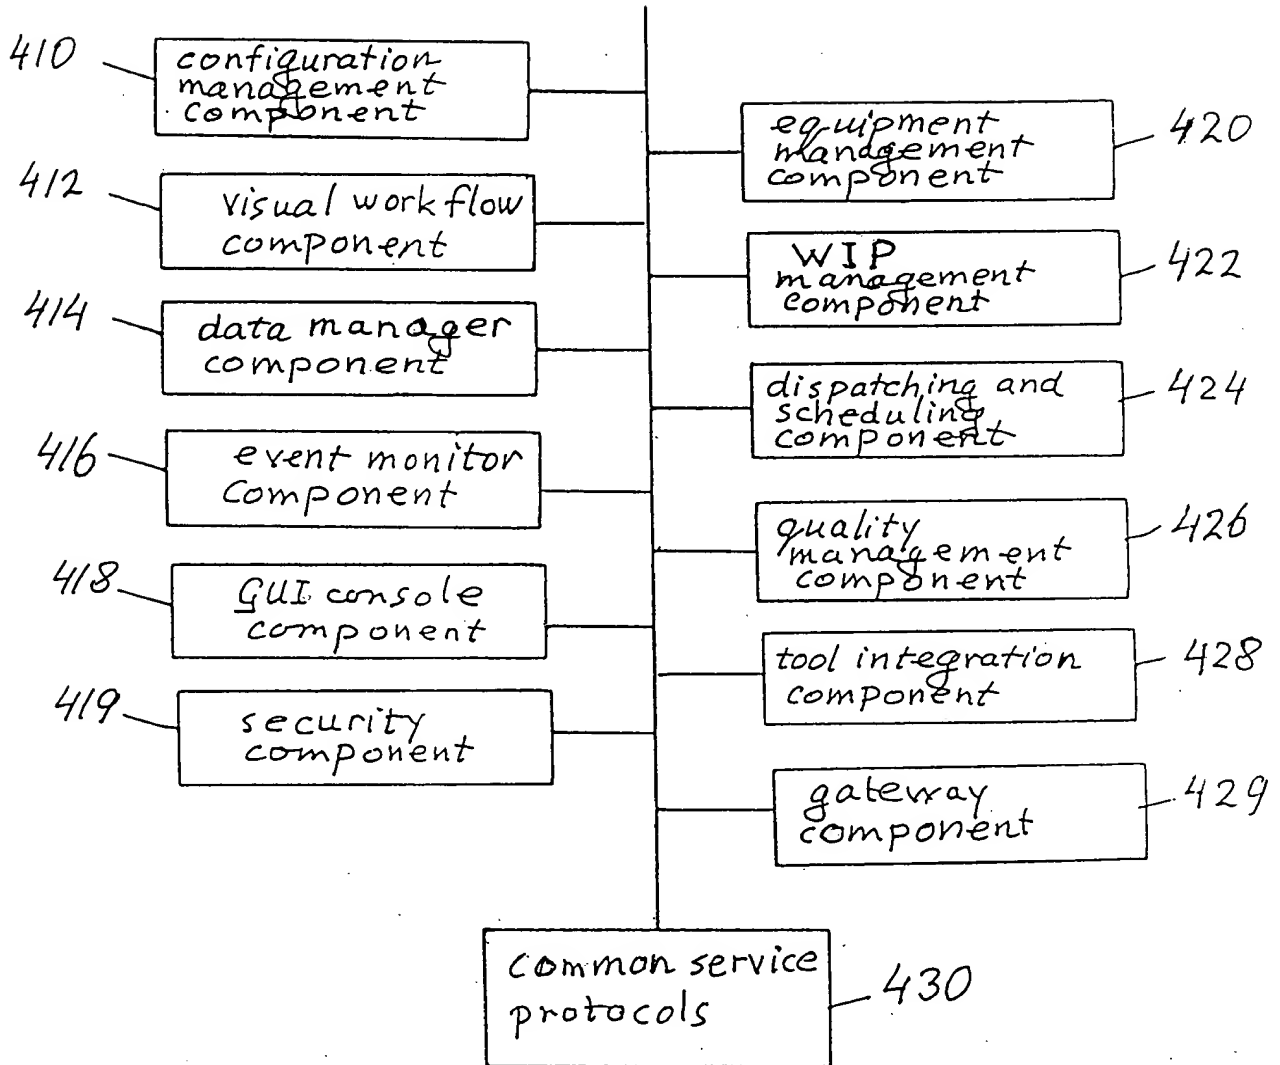 410
configuration
management
component
412
visual workflow
component
414
data manager
component
416
event monitor
component
418
GUI console
component
419
security
component
equipment
management
component
420
WIP
management
component
422
dispatching and
scheduling
component
424
quality
management
component
426
tool integration
component
428
gateway
component
429
common service
protocols
430